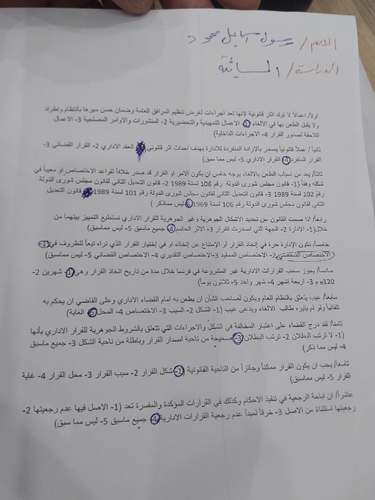 الاسم / رسول اسماعيل محمود
الدراسة / المسائية
اولا/ اعمالاً لا تولد اثار قانونية لانها تعد اجراءات لغرض تنظيم المرافق العامة وضمان حسن سيرها بأنتظام واطراد
ولا يقبل الطعن بها في الالغاء 1- الاعمال التمهيدية والتحضيرية 2- المنشورات والاوامر المصلحية 3- الاعمال
اللاحقة لصدور القرار 4- الاجراءات الداخلية)
ثانيا / عملاً قانونياً يصدر بالارادة المنفردة للادارة بهدف احداث اثر قانوني العقد الاداري 2- القرار القضائي 3-
القرار المنفرد 4- القرار الاداري 5- ليس مما سبق)
ثالثا/ يعد من اسباب الطعن بالالغاء بوجه خاص ان يكون الامر او القرار قد صدر خلافاً لقواعد الاختصاص او معيباً في
شكله وفقاً 1- قانون مجلس شورى الدولة رقم 106 لسنة 1989 2- قانون التعديل الثاني لقانون مجلس شورى الدولة
رقم 102 لسنة 1989 3- قانون التعديل الثاني لقانون مجلس شورى الدولة رقم 101 لسنة 1989 4- قانون التعديل
الثاني لقانون مجلس شورى الدولة رقم 106 لسنة 1969 ليس مماذكر)
رابعا/ اذا صمت القانون عن تحديد الاشكال الجوهرية وغير الجوهرية للقرار الاداري نستطيع التمييز بينهما من
خلال(1- الادارة 2- الجهة التي اصدرت القرار 3- الاثر الحاسم 4- جميع ماسبق 5- ليس مماسبق)
خامسا/ تكون الإدارة حرة في إتخاذ القرار أو الإمتناع عن إتخاذه او في إختيار القرار الذي تراه تبعاً للظروف في 1-
الاختصاص الشخصي 2- الاختصاص المقيد 3- الاختصاص التقديري 4- الاختصاص القضائي 5- ليس مماسبق)
سادسا/ يجوز سحب القرارات الادارية غير المشروعة في فرنسا خلال مدة من تاريخ اتخاذ القرار وهي 1- شهرين 2-
120يوم 3- اربعة اشهر 4- شهر واحد 5- ثلاثون يوماً)
سابعا/ عيب يتعلق بالنظام العام ويكون لصاحب الشأن ان يطعن به امام القضاء الاداري وعلى القاضي ان يحكم به
تلقائياً ولو لم يثيره طالب الالغاء ويدعى عيب 1- الشكل 2- السبب 3- الاختصاص 4- المحل 5- الغاية)
ثامنا/ لقد درج القضاء على اعتبار المخالفة في الشكل والاجراءات التي تتعلق بالشروط الجوهرية للقرار الاداري بأنها
(1- لا ترتب البطلان 2- ترتب البطلان 3- صحيحة من ناحية اصدار القرار وباطلة من ناحية الشكل 3- جميع ماسبق
4- ليس مما ذكر)
تاسعا/ يجب ان يكون القرار ممكناً وجائزاً من الناحية القانونية 1- شكل القرار 2- سبب القرار 3- محل القرار 4- غاية
القرار 5- ليس مماسبق)
عاشرا/ ان اباحة الرجعية في تنفيذ الاحكام وكذلك في القرارات المؤكدة والمفسرة تعد (1- الاصل فيها عدم رجعيتها 2-
رجعيتها استثناءً من الاصل 3- خرقاً لمبدأ عدم رجعية القرارات الادارية 4- جميع ماسبق 5- ليس مما سبق)